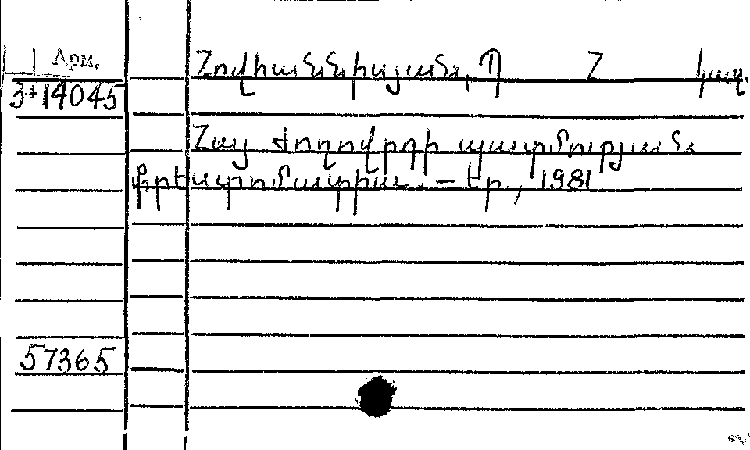 Арм.
Հովհաննիսյան, Պ Հ կազ.
3+14045
Հայ ժողովրդի պատմության
քրեստոմատիա. – Եր., 1981
57365